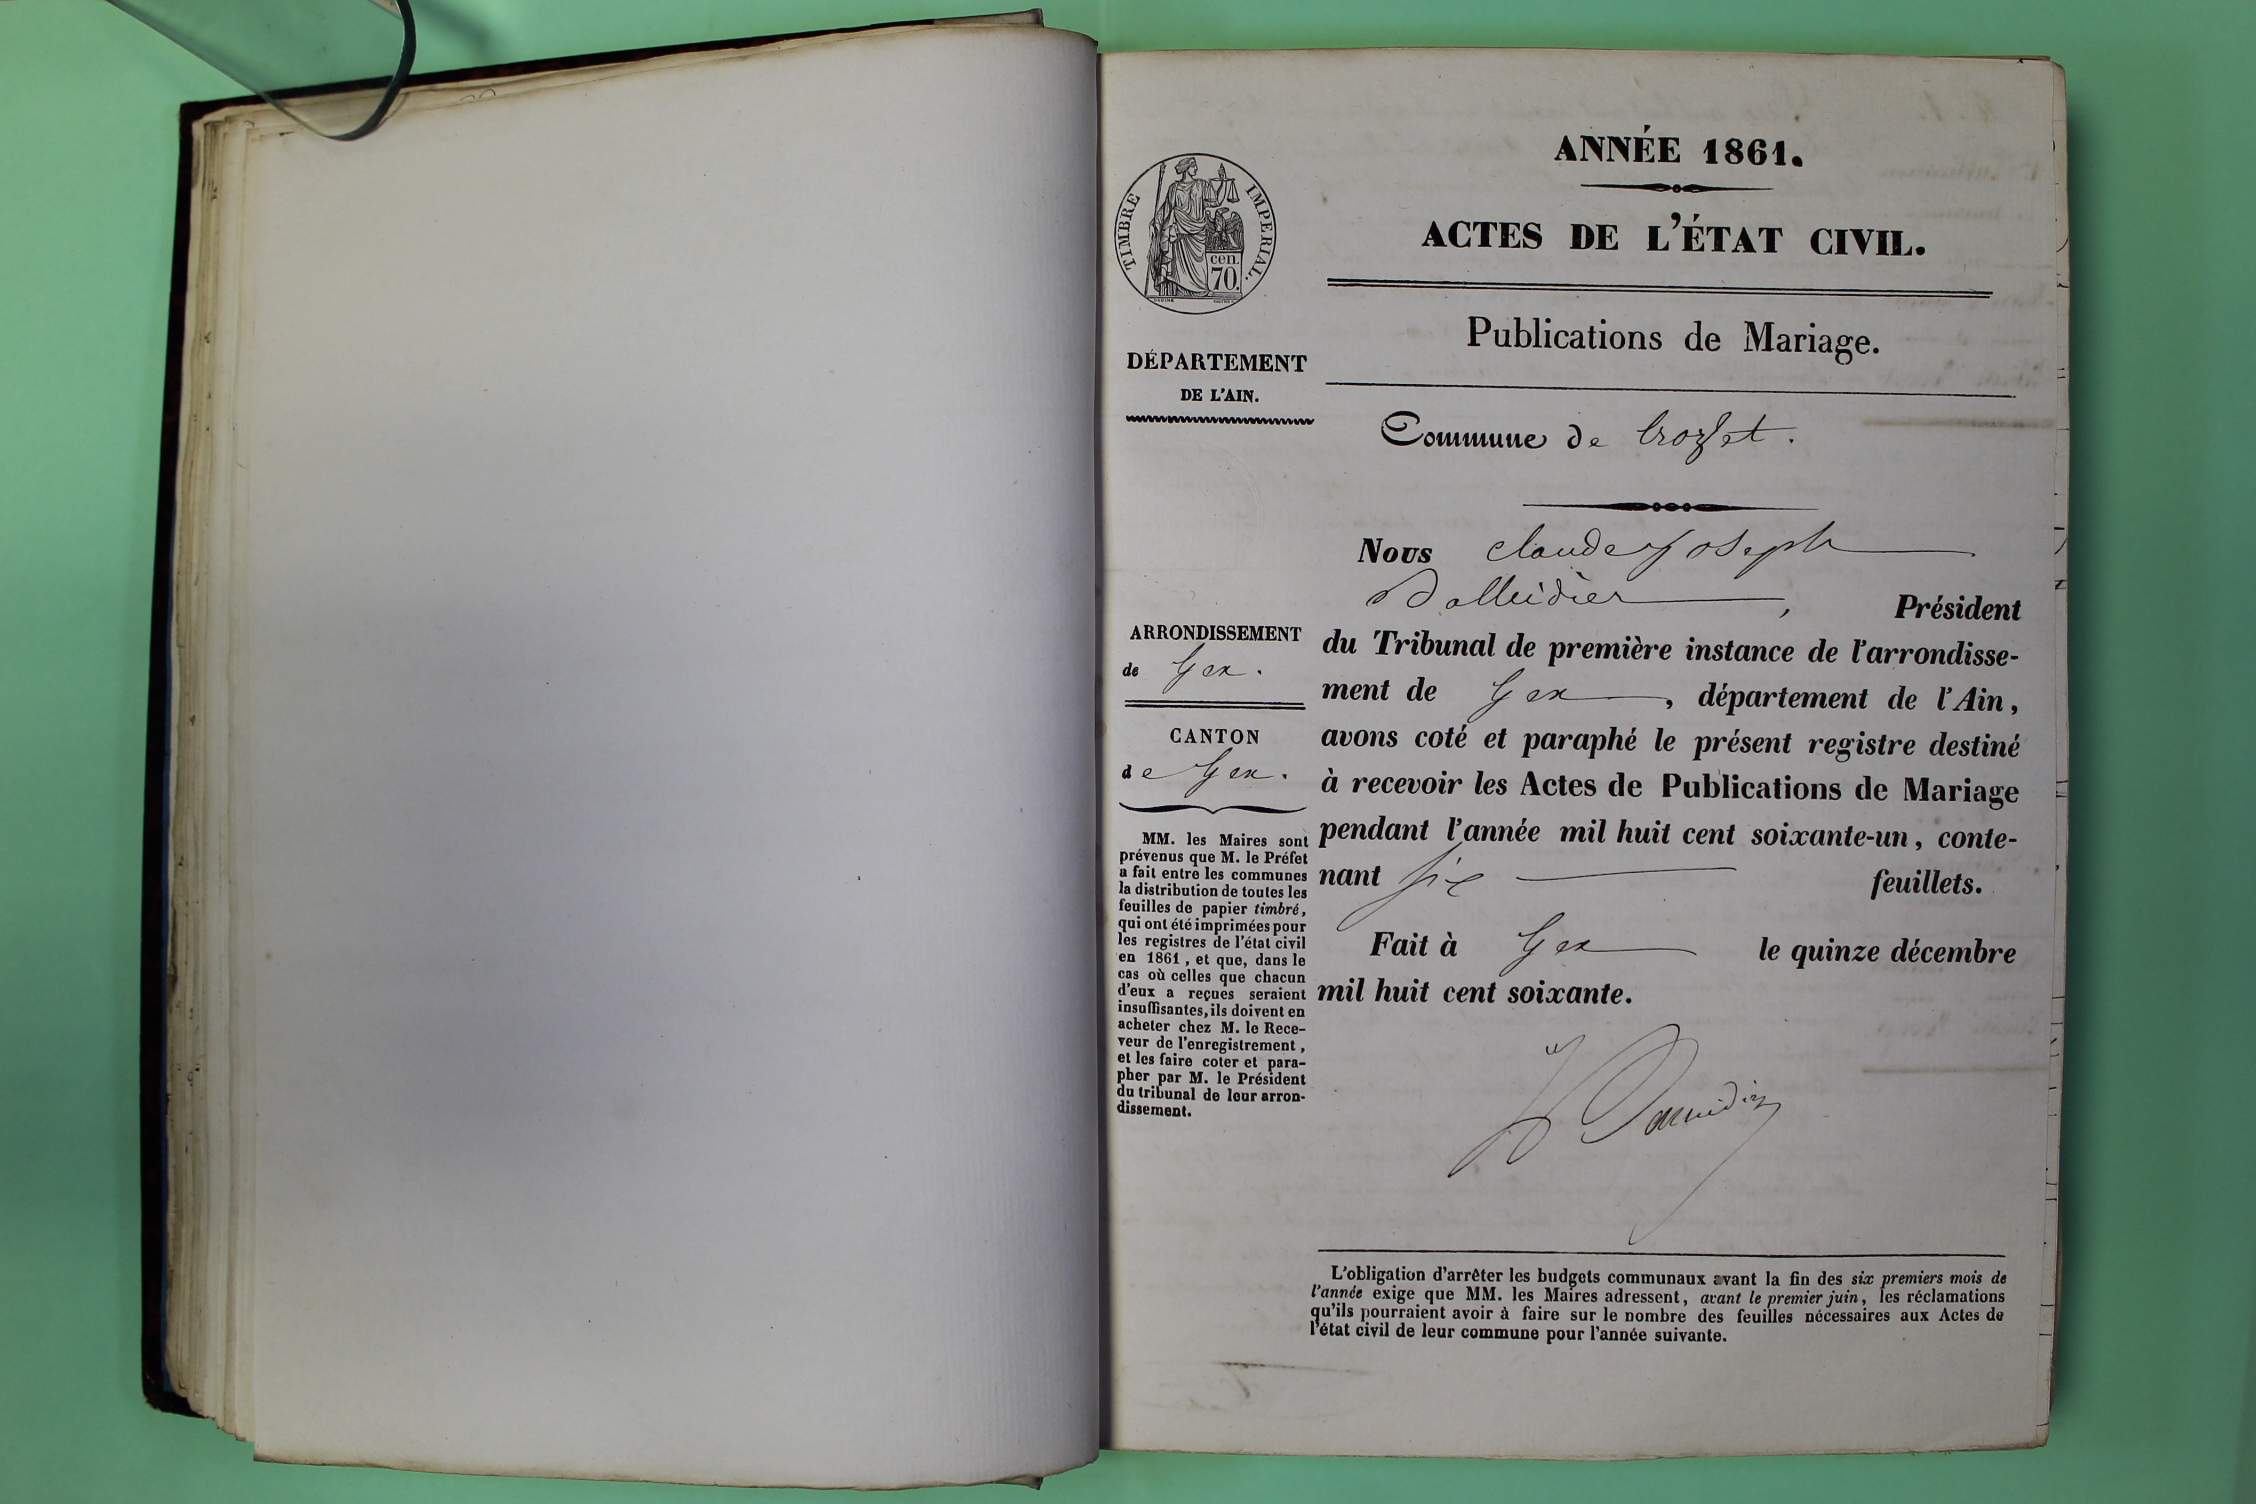 ANNÉE 1861.
ACTES DE L'ÉTAT CIVIL.
Publications de Mariage.
TIMBRE IMPERIAL.
cen.
70.
DÉPARTEMENT
DE L'AIN.
Commune de Crozet.
ARRONDISSEMENT
de Gex.
CANTON
de Gex.
MM. les Maires sont
prévenus que M. le Préfet
a fait entre les communes
la distribution de toutes les
feuilles de papier timbré,
qui ont été imprimées pour
les registres de l'état civil
en 1861, et que, dans le
cas où celles que chacun
d'eux a reçues seraient
insuffisantes, ils doivent en
acheter chez M. le Rece-
veur de l'enregistrement,
et les faire coter et para-
pher par M. le Président
du tribunal de leur arron-
dissement.
Nous Claude Joseph
, Président
du Tribunal de première instance de l'arrondisse-
ment de Gex, département de l'Ain,
avons coté et paraphé le présent registre destiné
à recevoir les Actes de Publications de Mariage
pendant l'année mil huit cent soixante-un, conte-
nant six feuillets.
Fait à Gex le quinze décembre
mil huit cent soixante.
L'obligation d'arrêter les budgets communaux avant la fin des six premiers mois de
l'année exige que MM. les Maires adressent, avant le premier juin, les réclamations
qu'ils pourraient avoir à faire sur le nombre des feuilles nécessaires aux Actes de
l'état civil de leur commune pour l'année suivante.